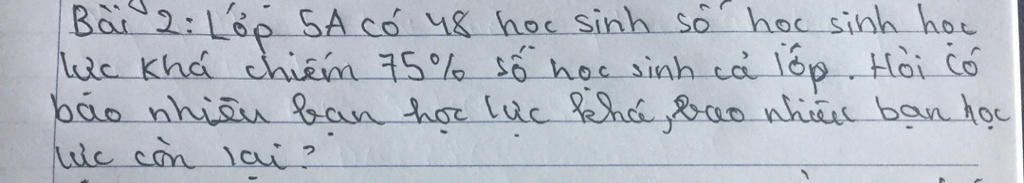 Bài 2: Lớp 5A có 48 học sinh số học sinh học
lực khá chiếm 75% số học sinh cả lớp. Hỏi có
bao nhiêu bạn học lực khá, bao nhiêu bạn học
lực còn lại?